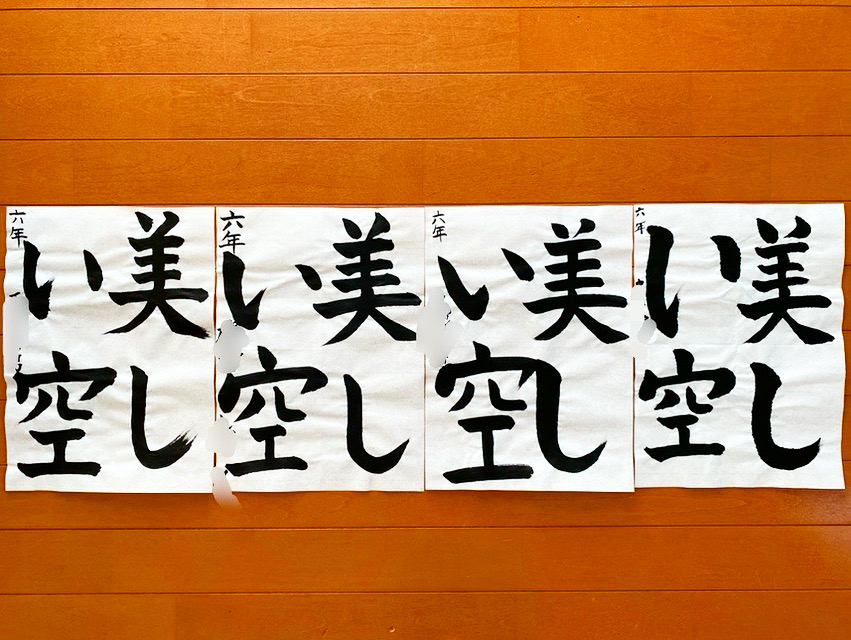 美し
い空
六年
美し
い空
六年
美し
い空
六年
美し
い空
六年